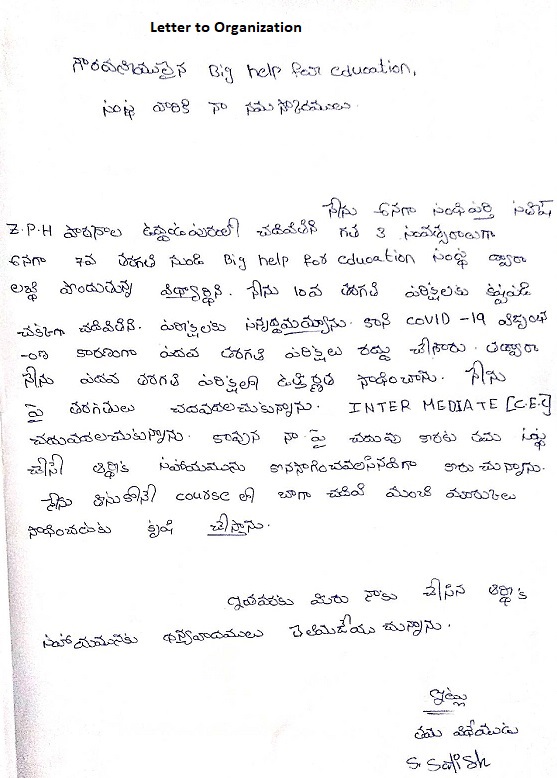 Letter to Organization
గౌరవనీయులైన Big help for education,
సంస్థ వారికి నా నమస్కారములు.
నేను అనగా సంధిపర్తి సతీష్
Z.P.H పాఠశాల ఉద్దండపురంలో చదివితిని గత 3 సంవత్సరాలుగా
అనగా 7వ తరగతి నుండి Big help for education సంస్థ ద్వారా
లబ్ధి పొందుచున్న విధ్యార్థిని. నేను 10వ తరగతి పరీక్షలకు కష్టపడి
చక్కగా చదివితిని. పరీక్షలకు సన్నద్ధమయ్యాను. కాని COVID -19 విజృంభ
-ణ కారణంగా పదవ తరగతి పరీక్షలు రద్దు చేసారు. తద్వారా
నేను పదవ తరగతి పరీక్షలలో ఉత్తీర్ణత సాధించాను. నేను
పై తరగతులు చదవదలచుకున్నాను. INTER MEDIATE [C.E.C]
చదువదలచుకున్నాను. కావున నా పై చదువు కొరకు తమ సంస్థ
చేసే ఆర్థిక సహాయమును కొనసాగించవలసినదిగా కోరుచున్నాను.
నేను తీసుకొనే course లో బాగా చదివి మంచి మార్కులు
సాధించుటకు కృషి చేస్తాను.
ఇంతవరకు మీరు నాకు చేసిన ఆర్థిక
సహాయమునకు ధన్యవాదములు తెలియజేయుచున్నాను.
ఇట్లు
తమ విధేయుడు
S. Satish